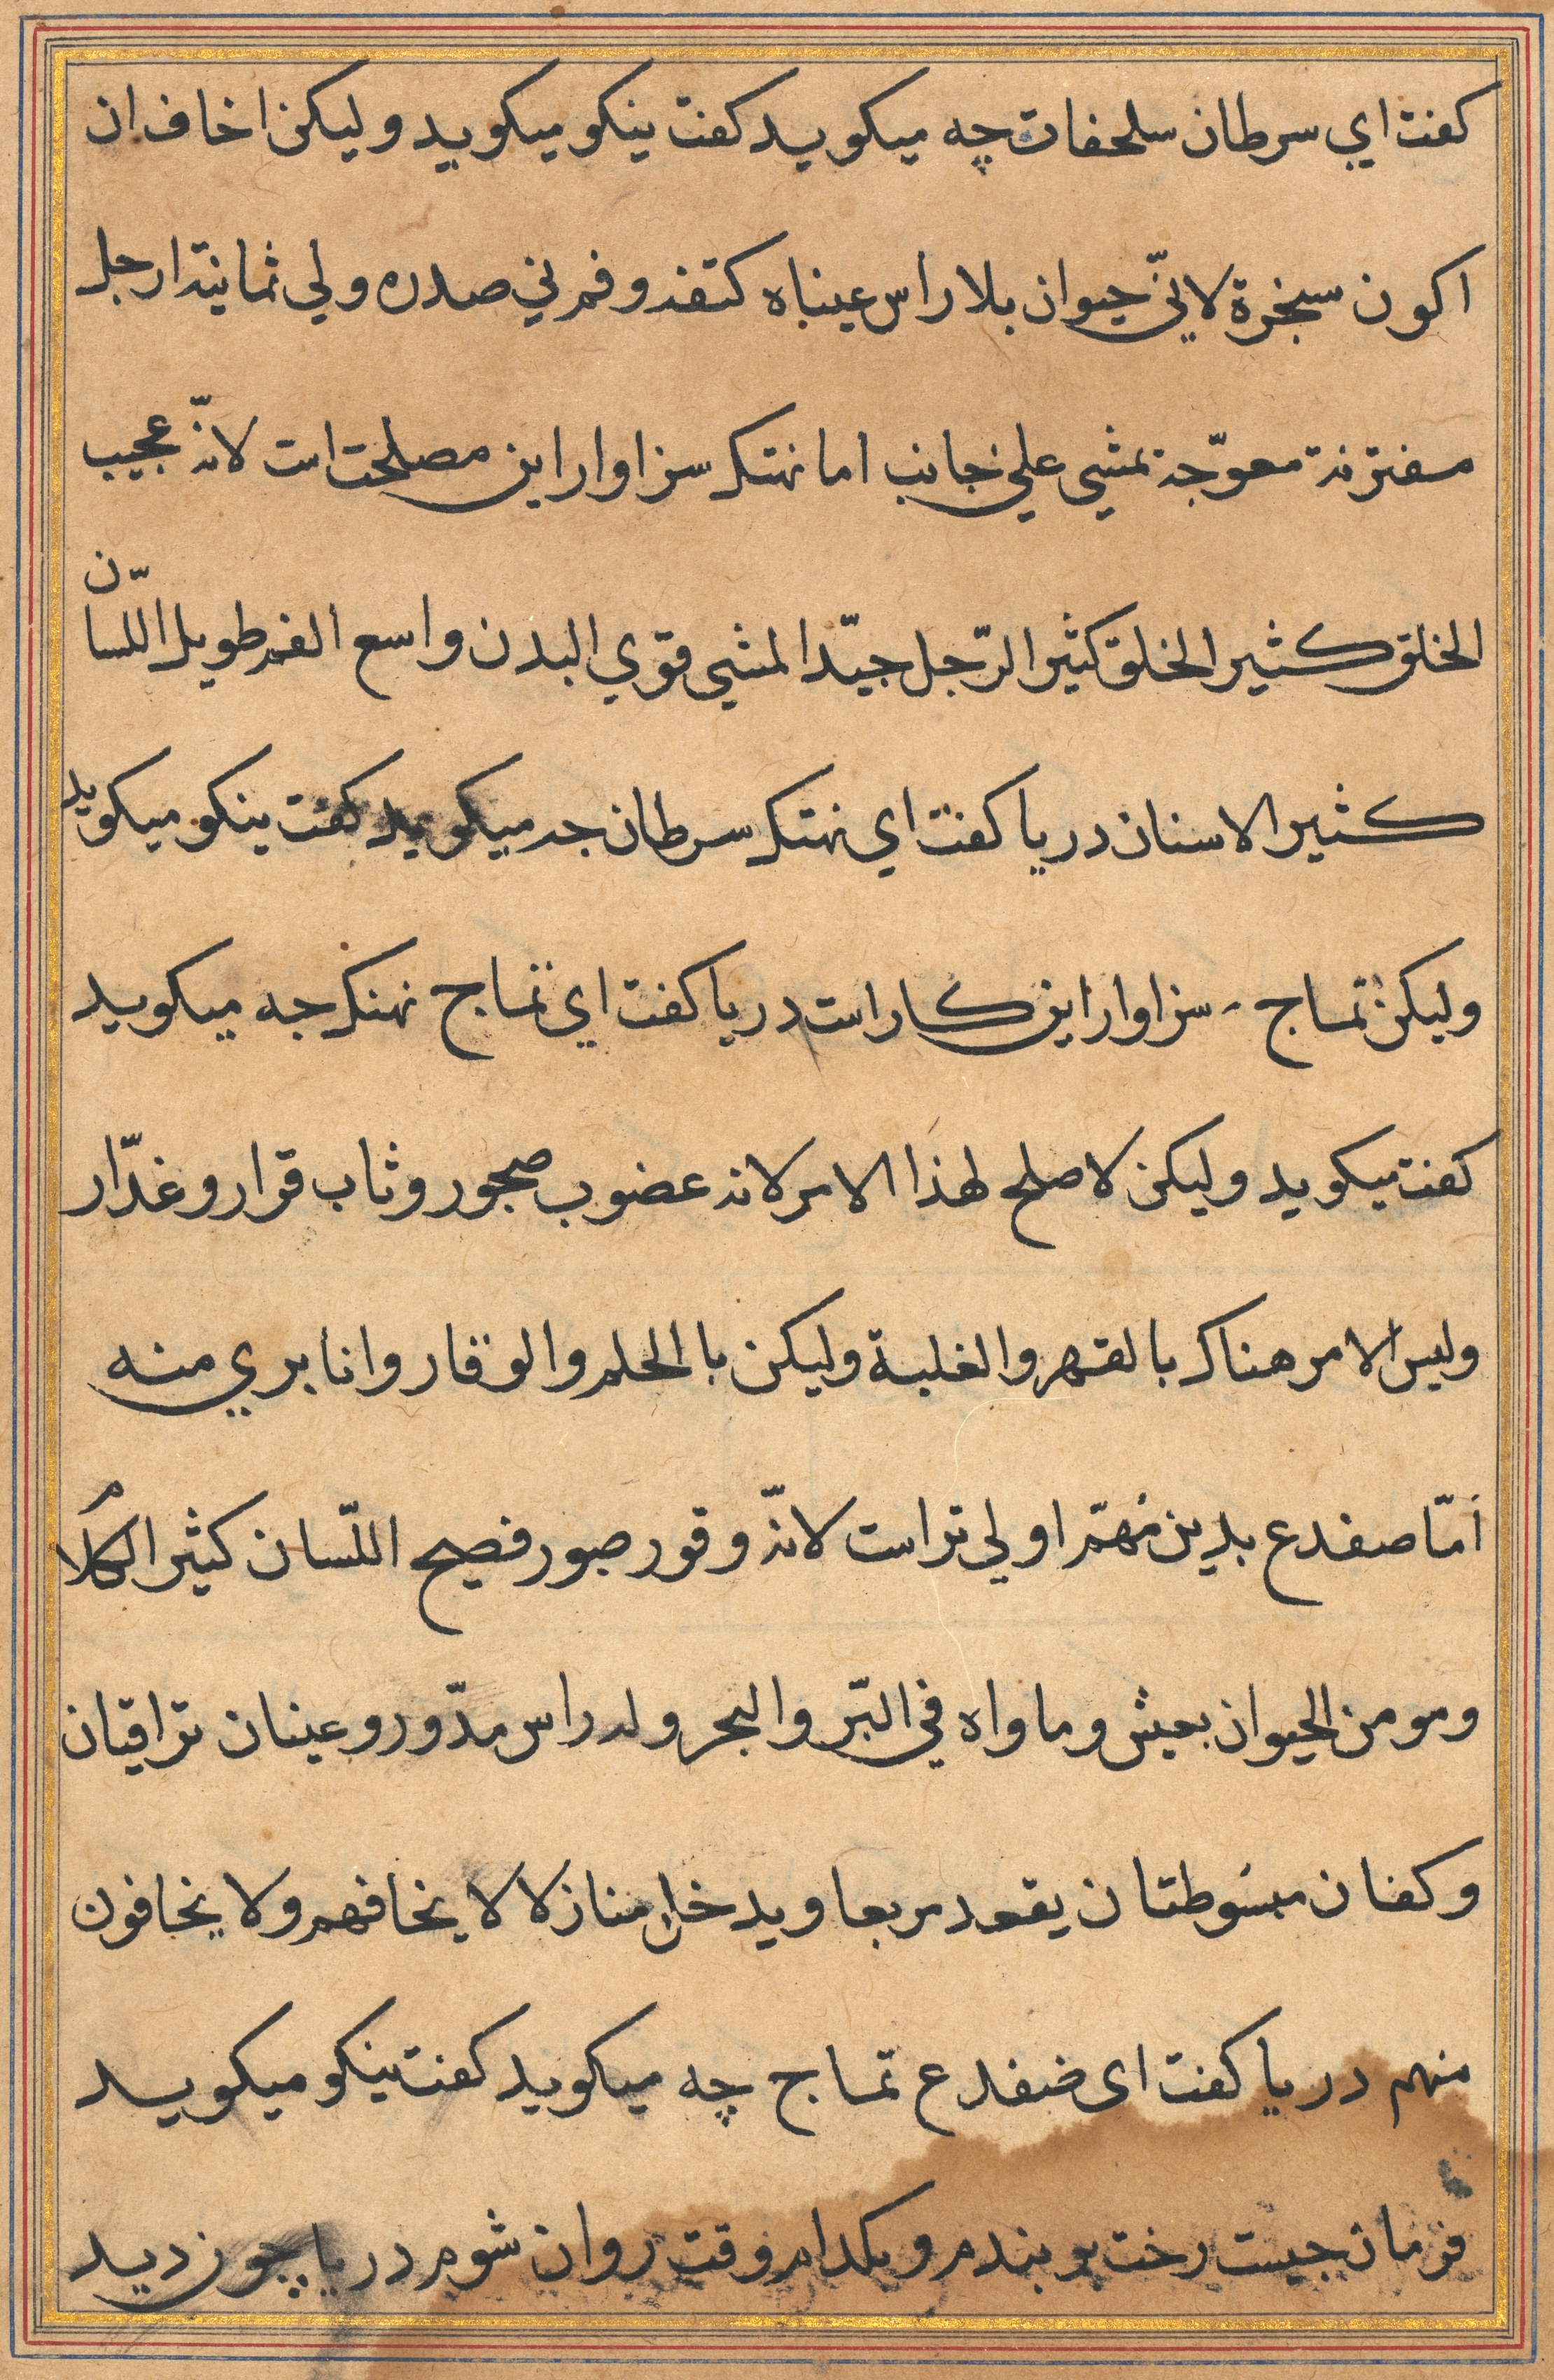 كفت اي سرطان سلحفات چه ميكويد كفت ينكو ميكويد وليكن اخاف ان
اكون سخرة لانّي حيوان بلا راس عيناه كتفه وفمه في صدره ولي ثمانية ارجل
مفترنة معوّجة تمشي علي جانب اما نهنك سزاوار اين مصلحت است لانه عجيب
الخلق كثير الخلق كثير الرّجل جيّد المشي قوي البدن واسع الفم طويل اللسان
كثير الاسنان دريا كفت اي نهنك سرطان جه ميكويد كفت ينكو ميكويد
وليكن تمساح سزاوار اين كار است دريا كفت اي تمساح نهنك جه ميكويد
كفت ميكويد وليكن لا صلح لهذا الامر لانه عضوب صجور وثاب قرار وغدّار
وليس الامر هناك بالقهر والغلبة وليكن با الحلم والوقار وانا بري منه
امّا صفدع بدين مُهمّ اولي تر است لانّه وقور صبور فصيح اللّسان كثير الكلام
ومو من الحيوان بعيش وماواه في البّر والبحر وله راس مدّور وعينان تراقتان
وكفان مبسُوطتان يقعد مربعا ويدخل منازلا لا يخافهم ولا يخافون
منهم دريا كفت اى ضفدع تمساح چه ميكويد كفت ينكو ميكويد
فرمان جيست رخت بر بندم وبكدام وقت روان شوم دريا چون ديد